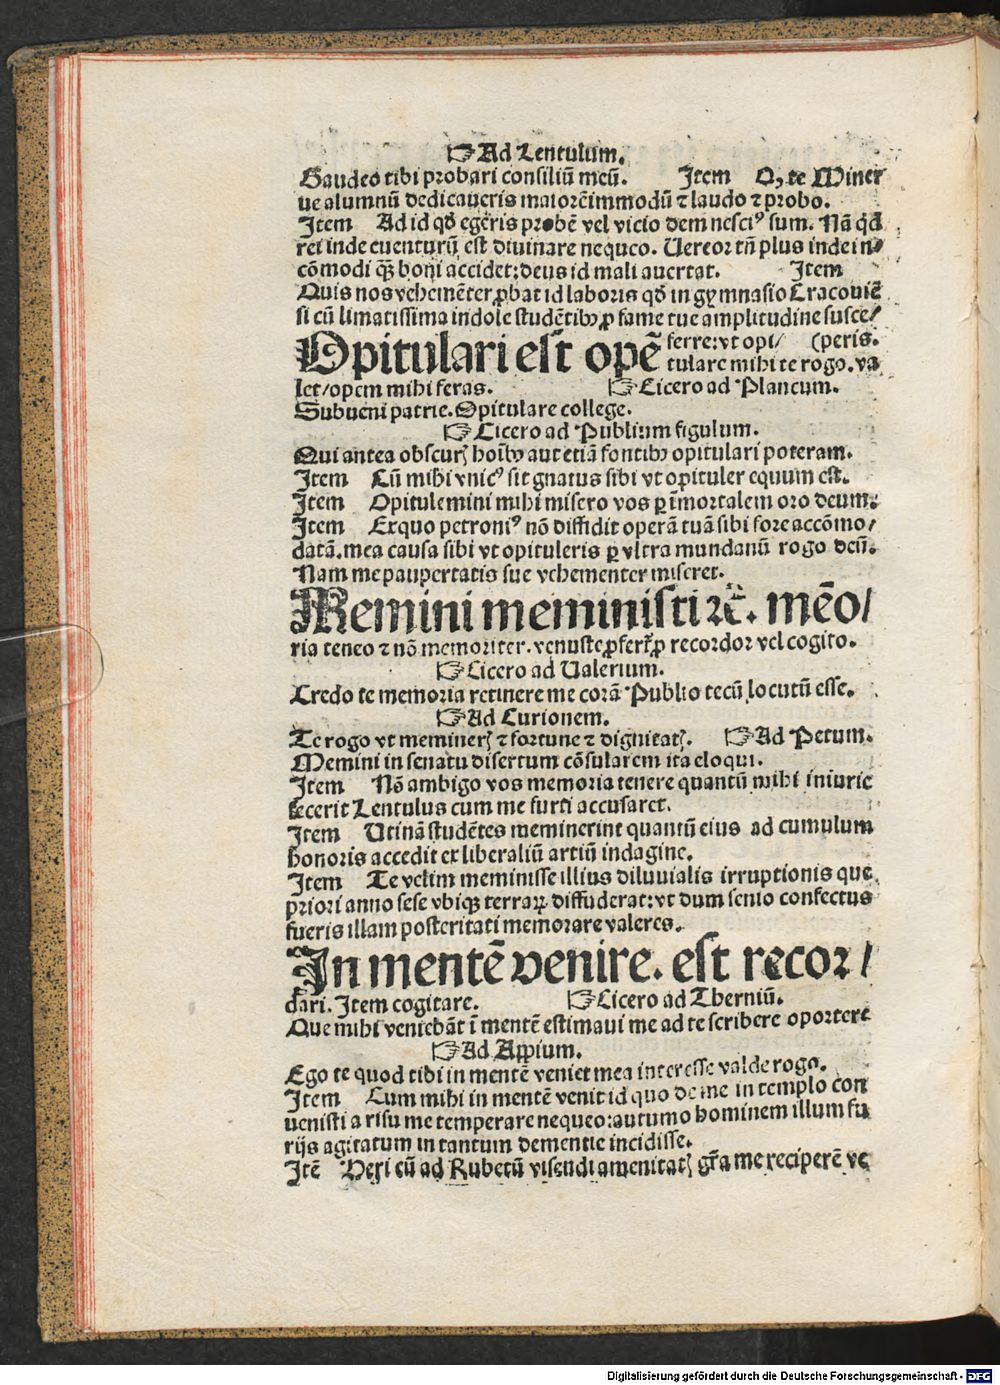 ☞ Ad Lentulum.
Gaudeo tibi probari consiliū meū. Item Q, te Miner
ue alumnū dedicaueris maiorē immodū ⁊ laudo ⁊ probo.
Item Ad id qd̄ egeris probē vel vicio dem nesciꝰ sum. Nā qd̄
rei inde euenturū est diuinare nequeo. Uereor tn̄ plus inde in⸗
cōmodi qꝫ boni accidet: deus id mali auertat. Item
Quis nos vehemēter ꝓbat id laboris qd̄ in gymnasio Cracouiē
si cū limatissima indole studētibꝰ ꝓ fame tue amplitudine susce/
Opitulari est opē ferre: vt opi/ (peris.
tulare mihi te rogo. va
let/opem mihi feras. ☞ Cicero ad Plancum.
Subueni patrie. Opitulare college.
☞ Cicero ad Publium figulum.
Qui antea obscurꝭ hoībꝰ aut etiā sontibꝰ opitulari poteram.
Item Cū mihi vnicꝰ sit gnatus sibi vt opituler equum est.
Item Opitulemini mihi misero vos ꝑ īmortalem oro deum.
Item Ex quo petroniꝰ nō diffidit operā tuā sibi fore accōmo/
datā. mea causa sibi vt opituleris ꝑ vltra mundanū rogo deū.
Nam me paupertatis sue vehementer miseret.
Memini meministi ⁊c̄. meō/
ria teneo ⁊ nō memoriter. venuste ꝓfert̄ ꝓ recordor vel cogito.
☞ Cicero ad Ualerium.
Credo te memoria retinere me corā Publio tecū locutū esse.
☞ Ad Curionem.
Te rogo vt meminerꝭ ⁊ fortune ⁊ dignitatꝭ. ☞ Ad Petum.
Memini in senatu disertum cōsularem ita eloqui.
Item Nō ambigo vos memoria tenere quantū mihi iniurie
fecerit Lentulus cum me furti accusaret.
Item Utinā studētes meminerint quantū eius ad cumulum
honoris accedit ex liberaliū artiū indagine.
Item Te velim meminisse illius diluuialis irruptionis que
priori anno sese vbiqꝫ terraꝝ diffuderat: vt dum senio confectus
fueris illam posteritati memorare valeres.
In mentē venire. est recor/
dari. Item cogitare. ☞ Cicero ad Therniū.
Que mihi veniebāt ī mentē estimaui me ad te scribere oportere
☞ Ad Appium.
Ego te quod tibi in mentē veniet mea interesse valde rogo.
Item Cum mihi in mentē venit id quo de me in templo con
uenisti a risu me temperare nequeo: autumo hominem illum fu
rijs agitatum in tantum dementie incidisse.
Itē Heri cū ad Rubetū visendi amenitatꝭ gr̄a me reciperē ve
Digitalisierung gefördert durch die Deutsche Forschungsgemeinschaft - DFG